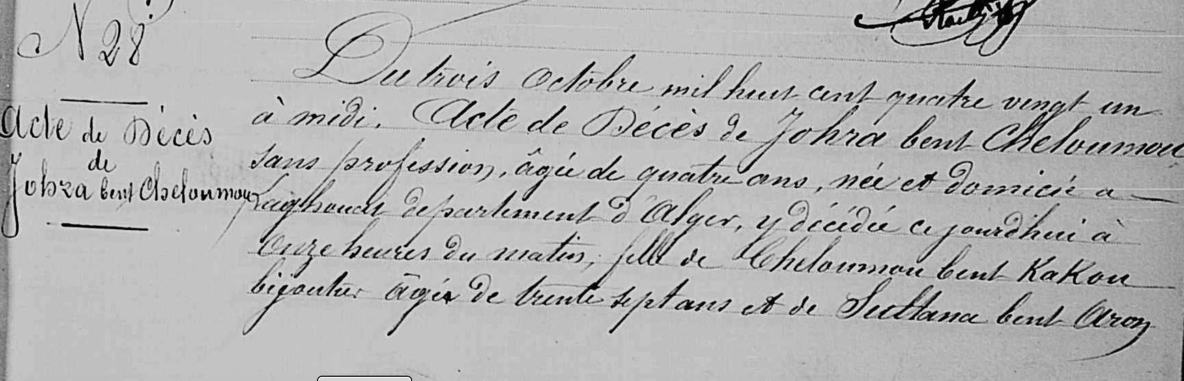 N 28
Acte de Décès
de
Johra bent Cheloumou
Du trois Octobre mil huit cent quatre vingt un
à midi. Acte de Décès de Johra bent Cheloumou
sans profession, âgée de quatre ans, née et domiciée a
Laghouat departement d'Alger, y décédée ce jourd'hui à
Onze heures du matin, fille de Cheloumou bent KaKou
bijoutier âgée de trente sept ans et de Sultana bent Aron